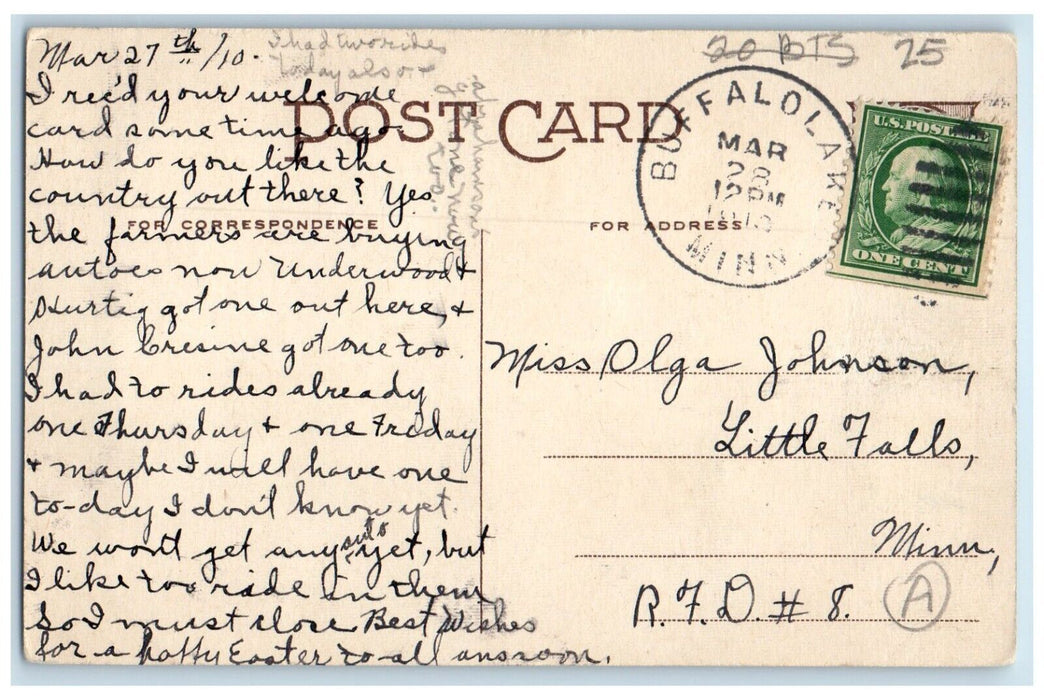 Mar 27th/10.
I had two rides
today also &
I rec'd your welcome
card some time ago.
How do you like the
country out there? Yes
the farmers are buying
autoes now Underwood &
Hurtig got one out here, &
John Cresine got one too.
I had to rides already
one Thursday & one Friday
& maybe I will have one
to-day I don't know yet.
We wont get any auto yet, but
I like too ride in them
So I must close Best Wishes
for a happy Easter to all ans soon.
one now
too.
POST CARD
FOR CORRESPONDENCE
FOR ADDRESS
20 PTS 25
BUFFALO LAKE
MAR
28
12 PM
1910
MINN.
U.S. POSTAGE
ONE CENT
Miss Olga Johnson,
Little Falls,
Minn,
R.F.D. # 8.
A